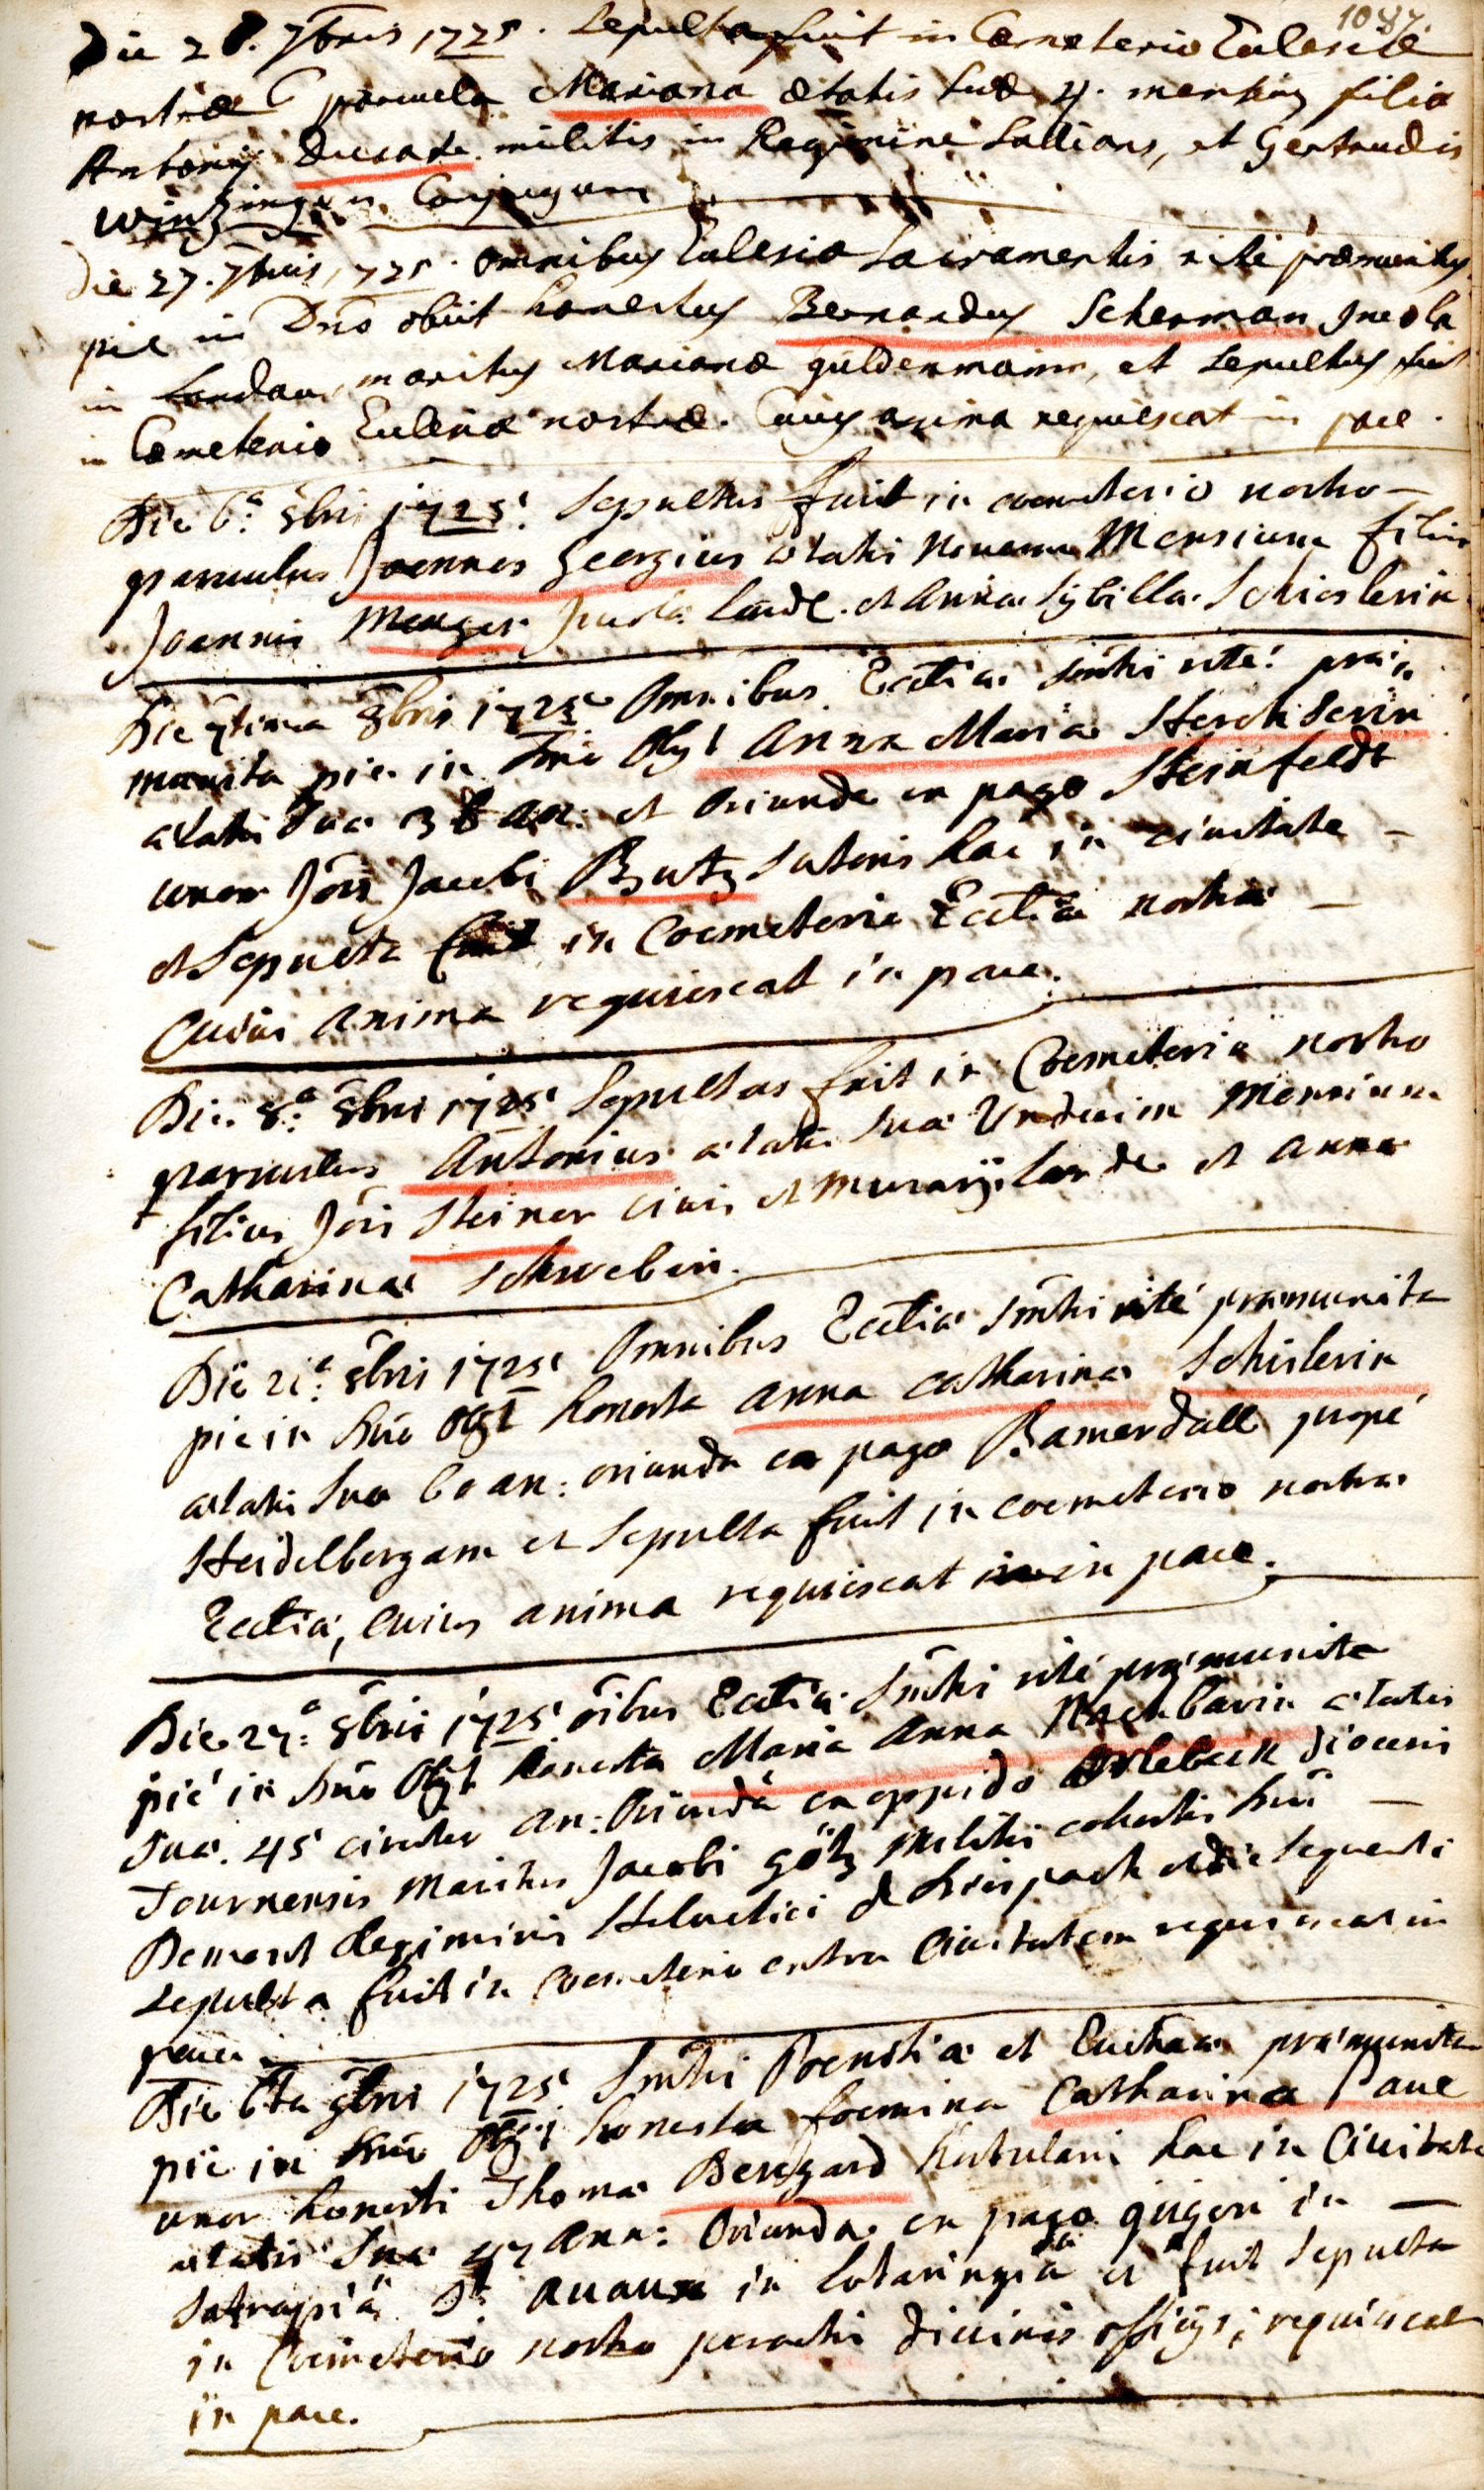 1087.
Die 28. 7bris 1725. Sepulta fuit in Cæmeterio Ecclesiæ
nostræ parvula Mariana ætatis suæ 4. mensium filia
Antonij Ducate militis in Regimine, et Gertrudis
Conjugum
Die 27. 7bris 1725. omnibus Ecclesiæ Sacramentis rite præmunitus
pie in Dno obiit honestus Bernardus Scherman Incola
in Landau, maritus Marianæ güldenmanin, et sepultus fuit
in Cæmeterio Ecclesiæ nostræ. Cuius anima requiescat in pace.
Die 6a. 8bris 1725. Sepultus fuit in coemeterio nostro
parvulus Joannes Georgius ætatis novem Mensium filius
Joannis Menger Land. et Anna Sybilla Schieslerin
Die 7tima 8bris 1725 Omnibus Eccliæ Smtis rité præ
munita pie in Dno Obyt Anna Maria
ætatis suæ 38 an: et Oriunda ex pago Steinfeldt
uxor Jois Jacobi Butz Sutoris hac in civitate
et Sepulta fuit in Coemeterio Eccliæ nostræ
Cuius anima requiescat in pace.
Die 8a. 8bris 1725 Sepultus fuit in Coemeterio nostro
parvulus Antonius ætatis suæ Undecim Mensium
filius Jois Steiner civis et murarij Landæ et Anna
Catharinæ Schwebin.
Die 21a. 8bris 1725 Omnibus Eccliæ Smtis rité præmunita
pie in Dno Obyt honesta Anna Catharina Schislerin
ætatis suæ 60 an: oriunda ex pago Bamerdall propé
Heidelbergam et Sepulta fuit in coemeterio nostræ
Eccliæ, cuius anima requiescat in in pace.
Die 27a. 8bris 1725 oibus Eccliæ Smtis rité præmunita
pié in Dno Obyt honesta Maria Anna Nachbarin ætatis
suæ 45 circiter an: Oriunda ex oppido diocesis
Tournensis Maritus Jacobi götz Militis cohortis Dni
Demont Regiminis Helvetici d et die sequenti
Sepulta fuit in Coemeterio extra Civitatem requiescat in
pace.
Die 6ta 9bris 1725 Smtis Poenitiæ et Euchræ præmunita
pié in Dno Obyt honesta foemina Catharina Paue
uxor honesti Thomæ Beregard hortulani hac in Civitate
ætatis suæ 47 ann: Oriunda ex pago in
Satrapiâ St. Avaux in Lotaringia et fuit Sepulta
in Coemeterio nostro peractis divinis officijs; requiescat
in pace.